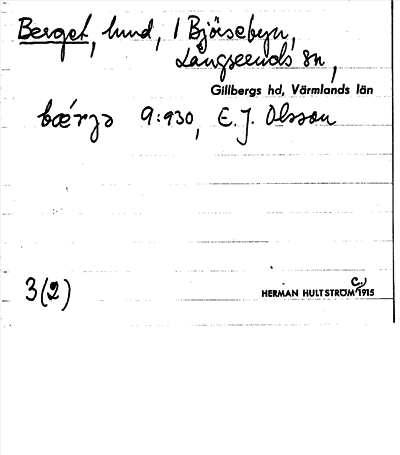 Berget, lund, / Björsebyn,
Långseruds sn,
Gillbergs hd, Värmlands län
bæ´rjə 9:930, E. J. Olsson
3(2)
HERMAN HULTSTRÖM C:a 1915